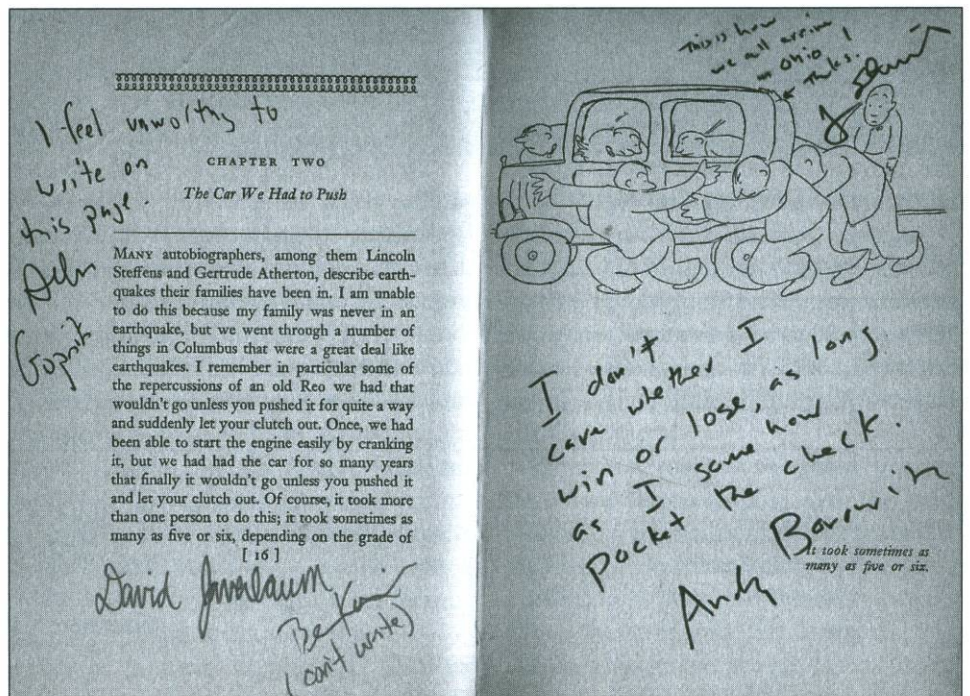 I feel unworthy to
write on
this page.
Adam
Gopnik
CHAPTER TWO
The Car We Had to Push
MANY autobiographers, among them Lincoln
Steffens and Gertrude Atherton, describe earth-
quakes their families have been in. I am unable
to do this because my family was never in an
earthquake, but we went through a number of
things in Columbus that were a great deal like
earthquakes. I remember in particular some of
the repercussions of an old Reo we had that
wouldn't go unless you pushed it for quite a way
and suddenly let your clutch out. Once, we had
been able to start the engine easily by cranking
it, but we had had the car for so many years
that finally it wouldn't go unless you pushed it
and let your clutch out. Of course, it took more
than one person to do this; it took sometimes as
many as five or six, depending on the grade of
[ 16 ]
David Javerbaum
(can't write)
This is how
we all arrive
in Ohio
I don't
care whether I
win or lose, as long
as I somehow
pocket the check.
Andy Borowitz
It took sometimes as
many as five or six.